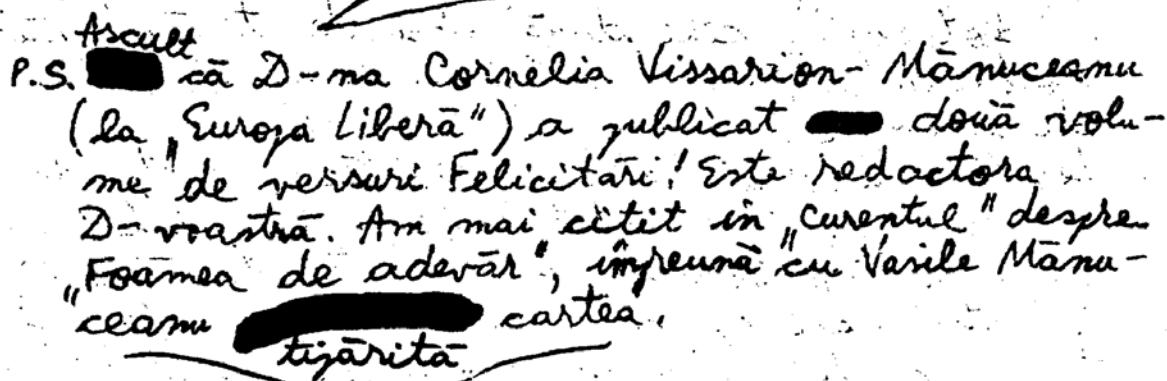 Ascult
P.S. că D-na Cornelia Vissarion-Mănuceanu
(la „Europa Liberă") a publicat două volu-
me de versuri Felicitări! Este redactora
D-voastră. Am mai citit în „Curentul" despre
„Foamea de adevăr", împreună cu Vasile Mănu-
ceanu cartea.
tipărită